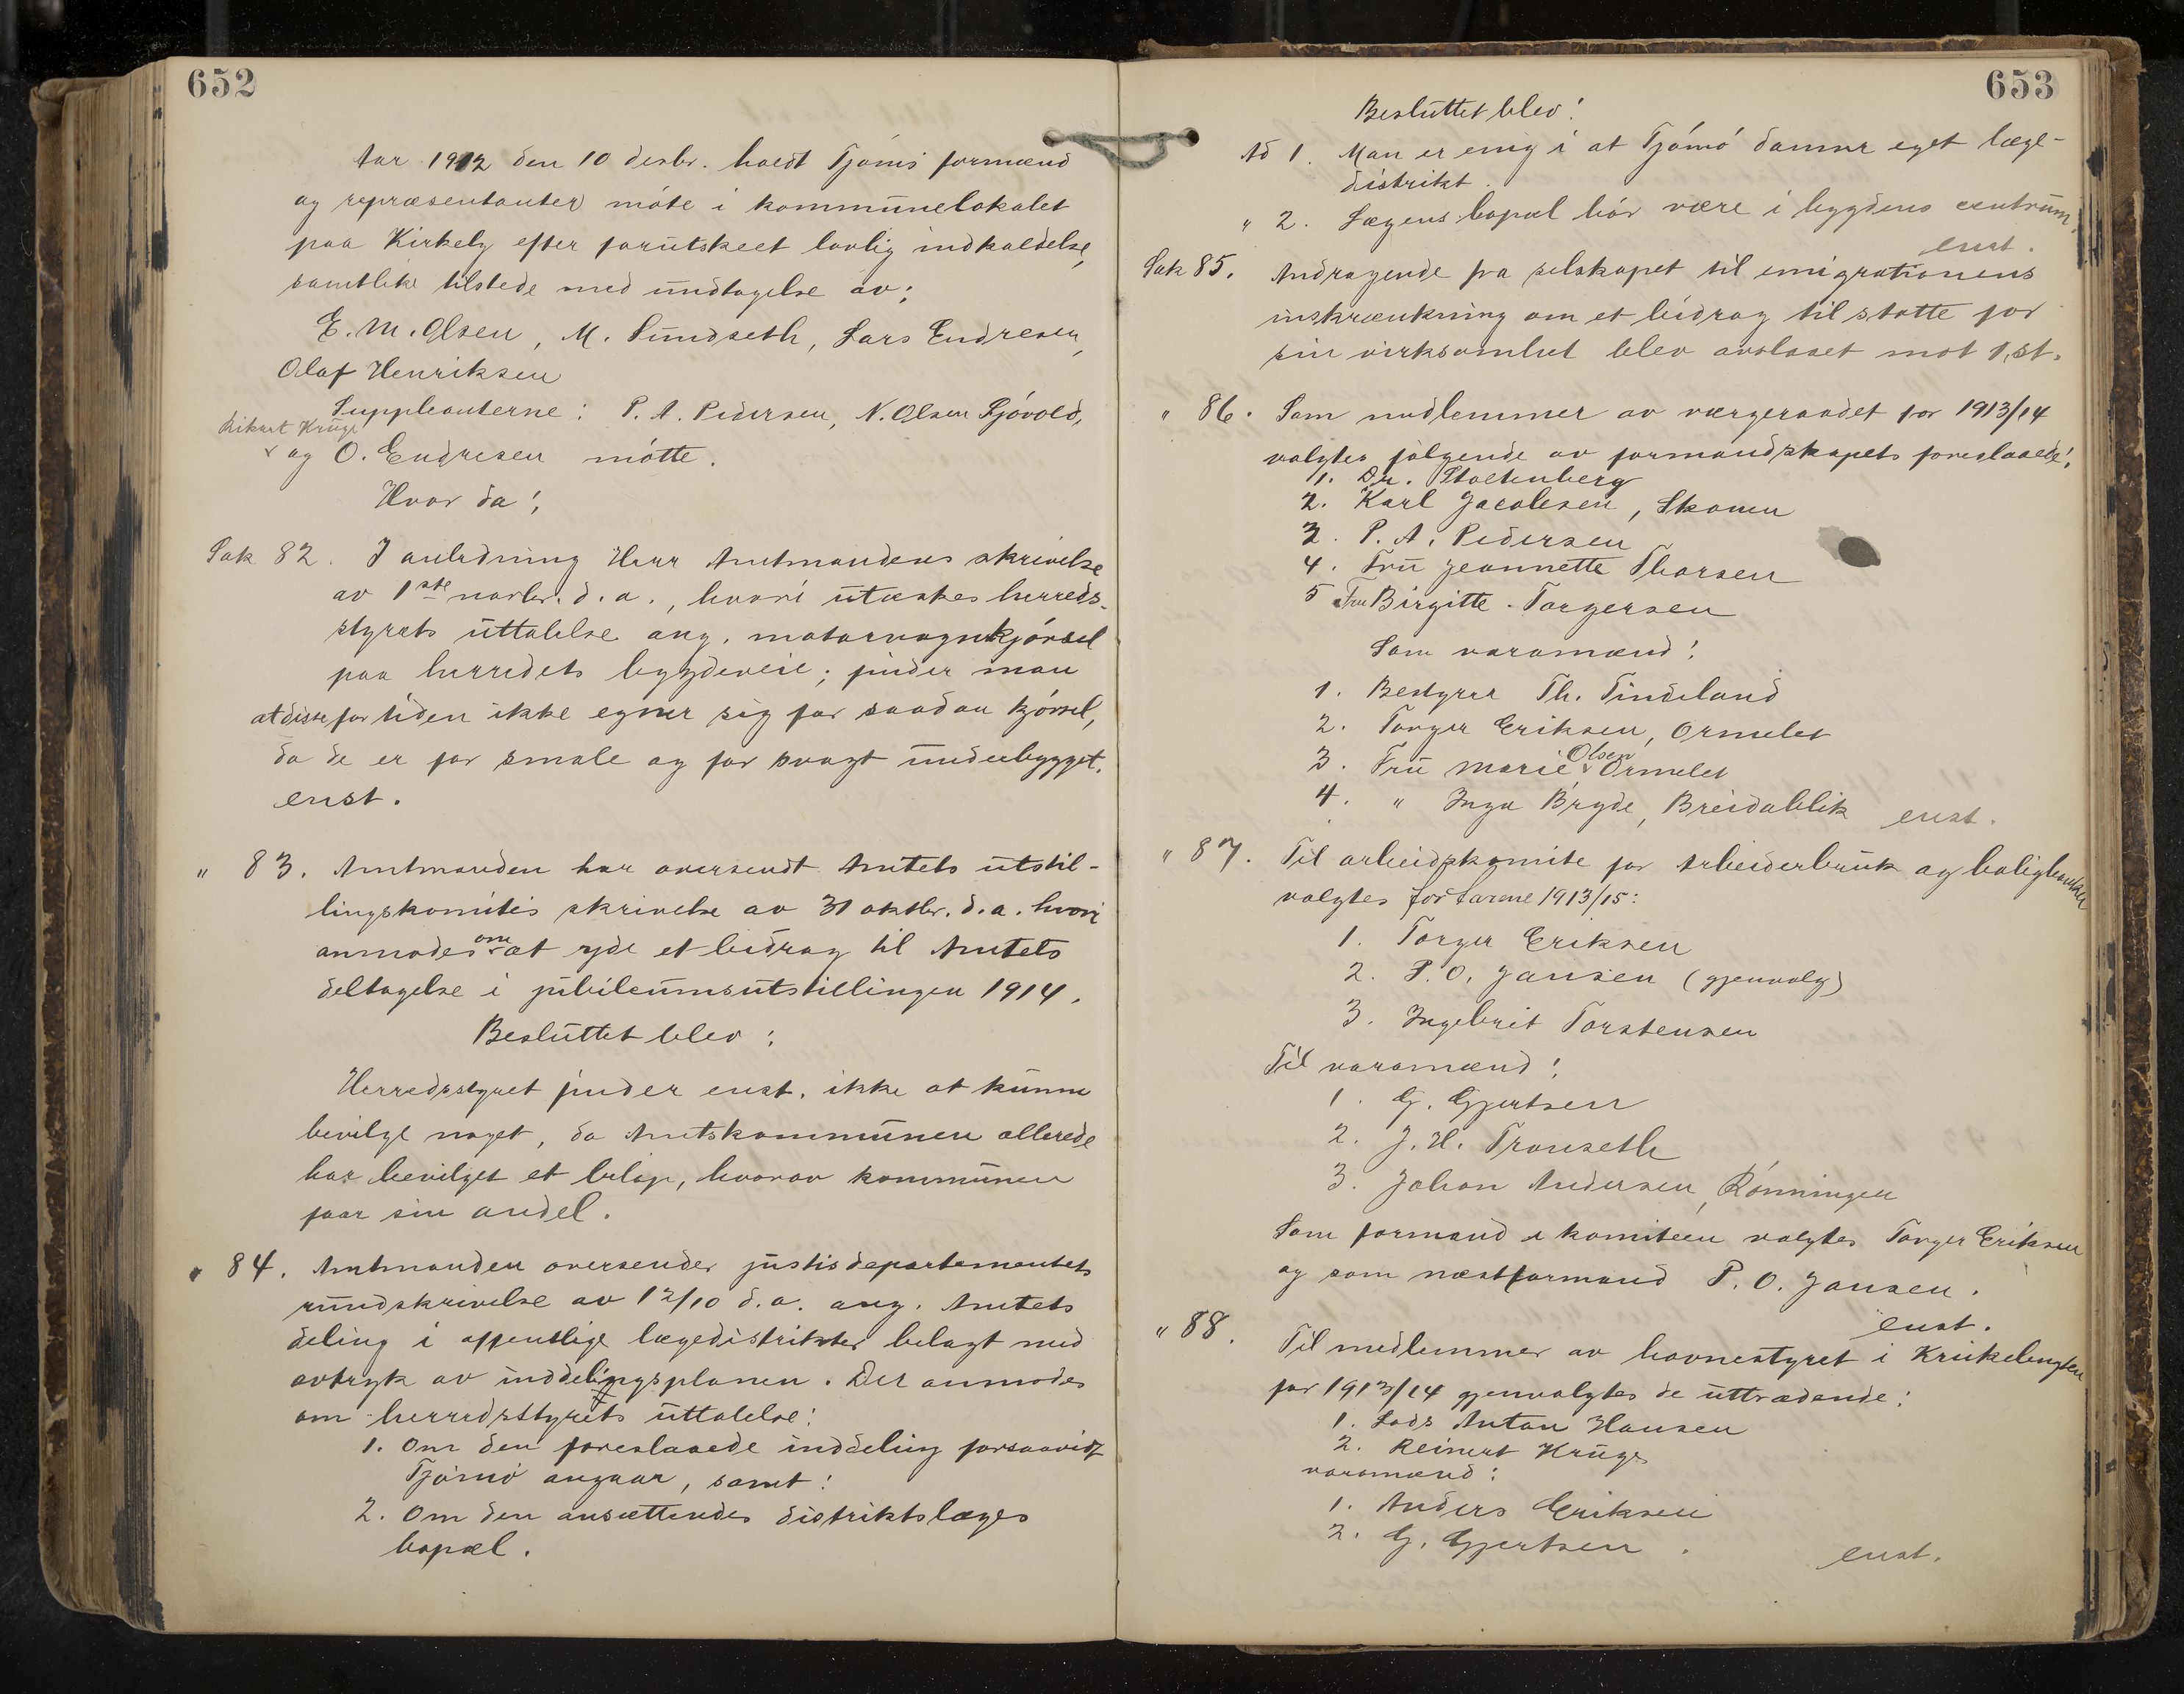 652
Aar 1912 den 10 desbr. holdt Tjømø formænd
og repræsentanter møte i kommunelokalet
paa Kirkely efter forutskeet lovlig indkaldelse,
samtlike tilstede med undtagelse av;
E. M. Olsen, M. Sundseth, Lars Endresen,
Olaf Henriksen
Suppleanterne: P. A. Pedersen, N. Olsen Sjøvold,
Rikart Krüge
og O. Endresen møtte.
Hvor da!
Sak 82. I anledning Herr Amtmandens skrivelse
av 1ste novbr. d. a., hvori utæskes herreds-
styrets uttalelse ang. motorvognkjørsel
paa herredets bygdeveie; finder man
at disse for tiden ikke egner sig for saadan kjørsel,
da de er for smale og for svagt underbygget.
enst.
" 83. Amtmanden har oversendt Amtets utstil-
lingskomités skrivelse av 31 oktbr. d. a. hvori
anmodes om at yde et bidrag til Amtets
deltagelse i jubileumsutstillingen 1914.
Besluttet blev:
Herredsstyret finder enst. ikke at kunne
bevilge noget, da Amtskommunen allerede
har bevilget et beløp, hvorav kommunen
faar sin andel.
" 84. Amtmanden oversender justisdepartementets
rundskrivelse av 12/10 d. a. ang. Amtets
deling i offentlige lægedistrikter belagt med
avtryk av inddelingsplanen. Der anmodes
om herredsstyrets uttalelse:
1. Om den foreslaaede inddeling forsaavidt
Tjømø angaar, samt:
2. Om den ansættendes distriktslæges
bopæl.
653
Besluttet blev!
Ad 1. Man er enig i at Tjømø danner eget læge-
distrikt.
" 2. Lægens bopæl bør være i bygdens centrum.
enst.
Sak 85. Andragende fra selskapet til emigrationens
inskrænkning om et bidrag til støtte for
sin virksomhet blev avslaaet mot 1, st.
" 86. Som medlemmer av værgeraadet for 1913/14
valgtes følgende av formandskapets foreslaaede!
1. Dr. Stoltenberg
2. Karl Jacobsen, Skouen
3. P. A. Pedersen
4. Fru Jeannette Thorsen
5 Fru Birgitte Torgersen
Som varamænd!
1. Bestyrer Th. Tindeland
2. Torger Eriksen, Ormelet
3. Fru Marie Olsen Ormelet
4. " Inga Bryde, Breidablik enst.
" 87. Til arbeidskomite for Arbeiderbruk og boligbanken
valgtes for aarene 1913/15:
1. Torger Eriksen
2. P. O. Jansen (gjenvalg)
3. Ingebrit Torstensen
Til varamænd!
1. G. Gjertsen
2. J. H. Tronseth
3. Johan Andersen, Rønningen
Som formand i komiteen valgtes Torger Eriksen
og som næstformand P. O. Jansen.
enst.
" 88. Til medlemmer av havnestyret i
for 1913/14 gjenvalgtes de uttrædende:
1. Lods Anton Hansen
2. Reinert Krüge
varamænd:
1. Anders Eriksen
2. G. Gjertsen.
enst.